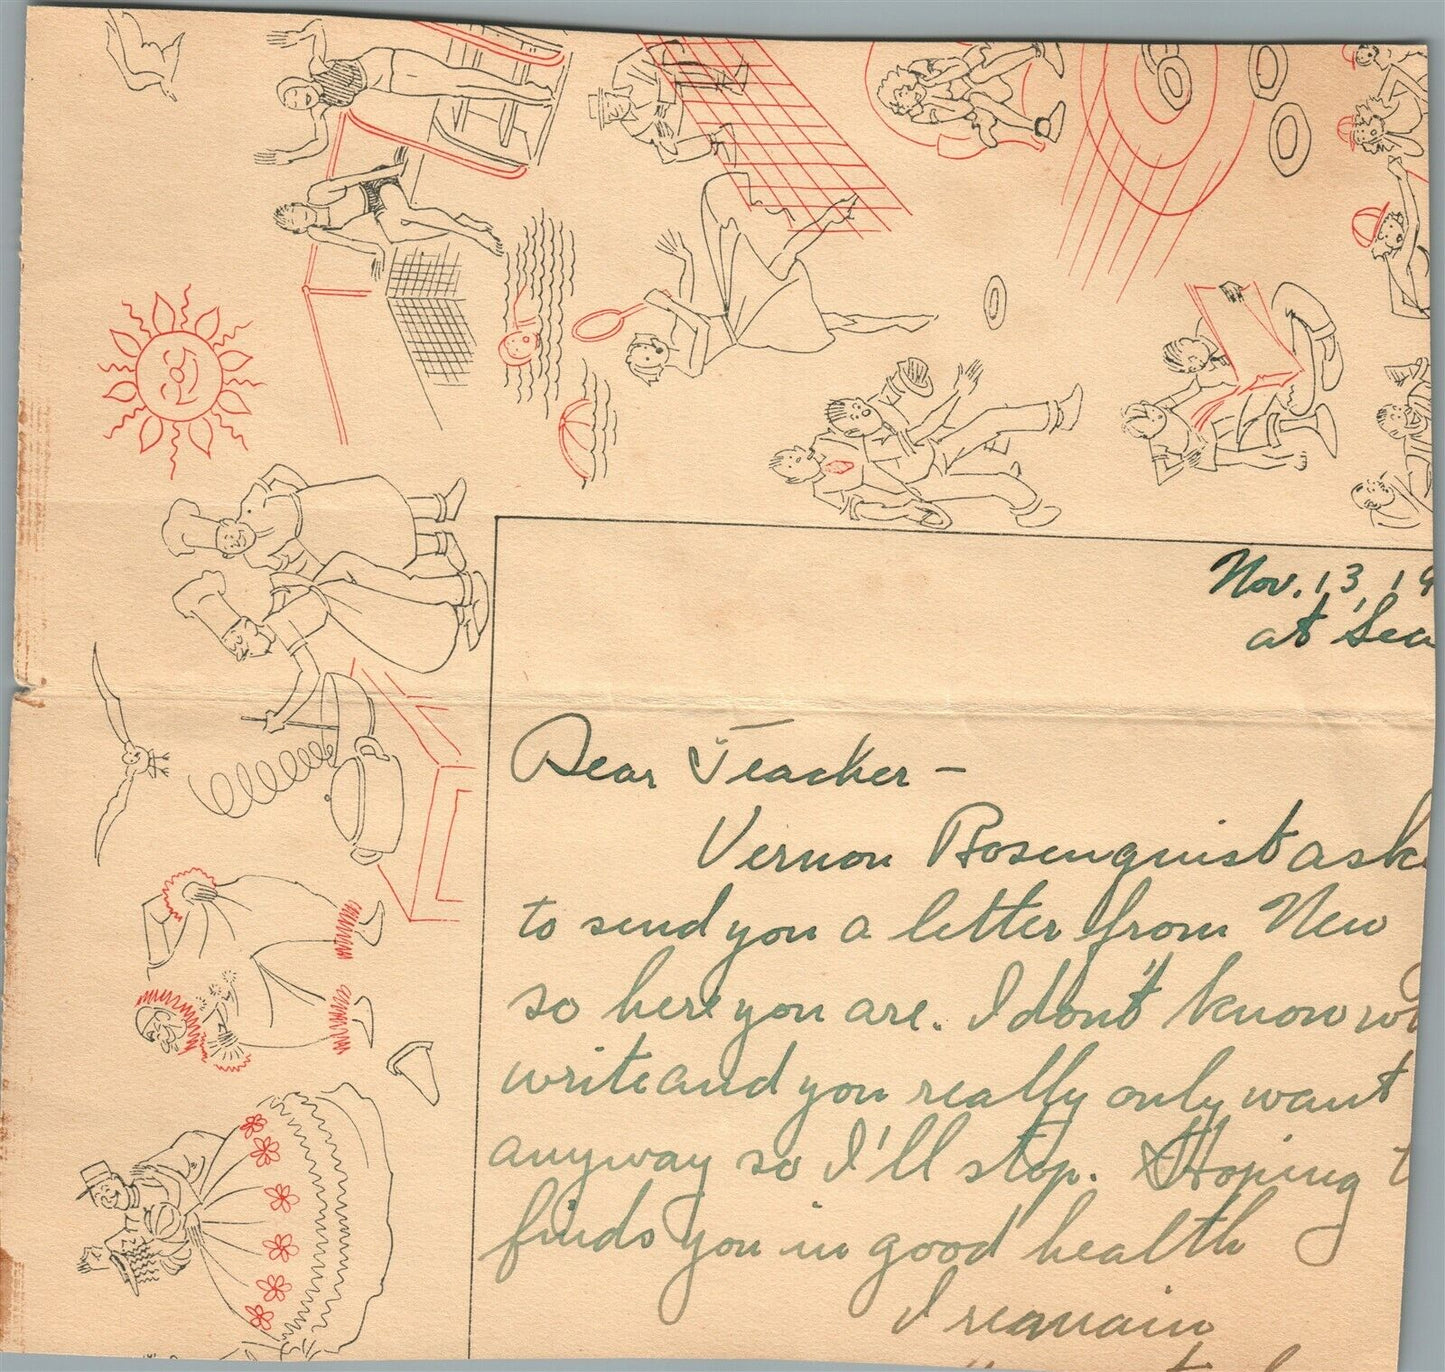 Nov. 13, 19
at Sea
Dear Teacher –
Vernon Rosenquist aske
to send you a letter from New
so here you are. I don't know w
write and you really only want
anyway so I'll stop. Hoping t
finds you in good health
I remain